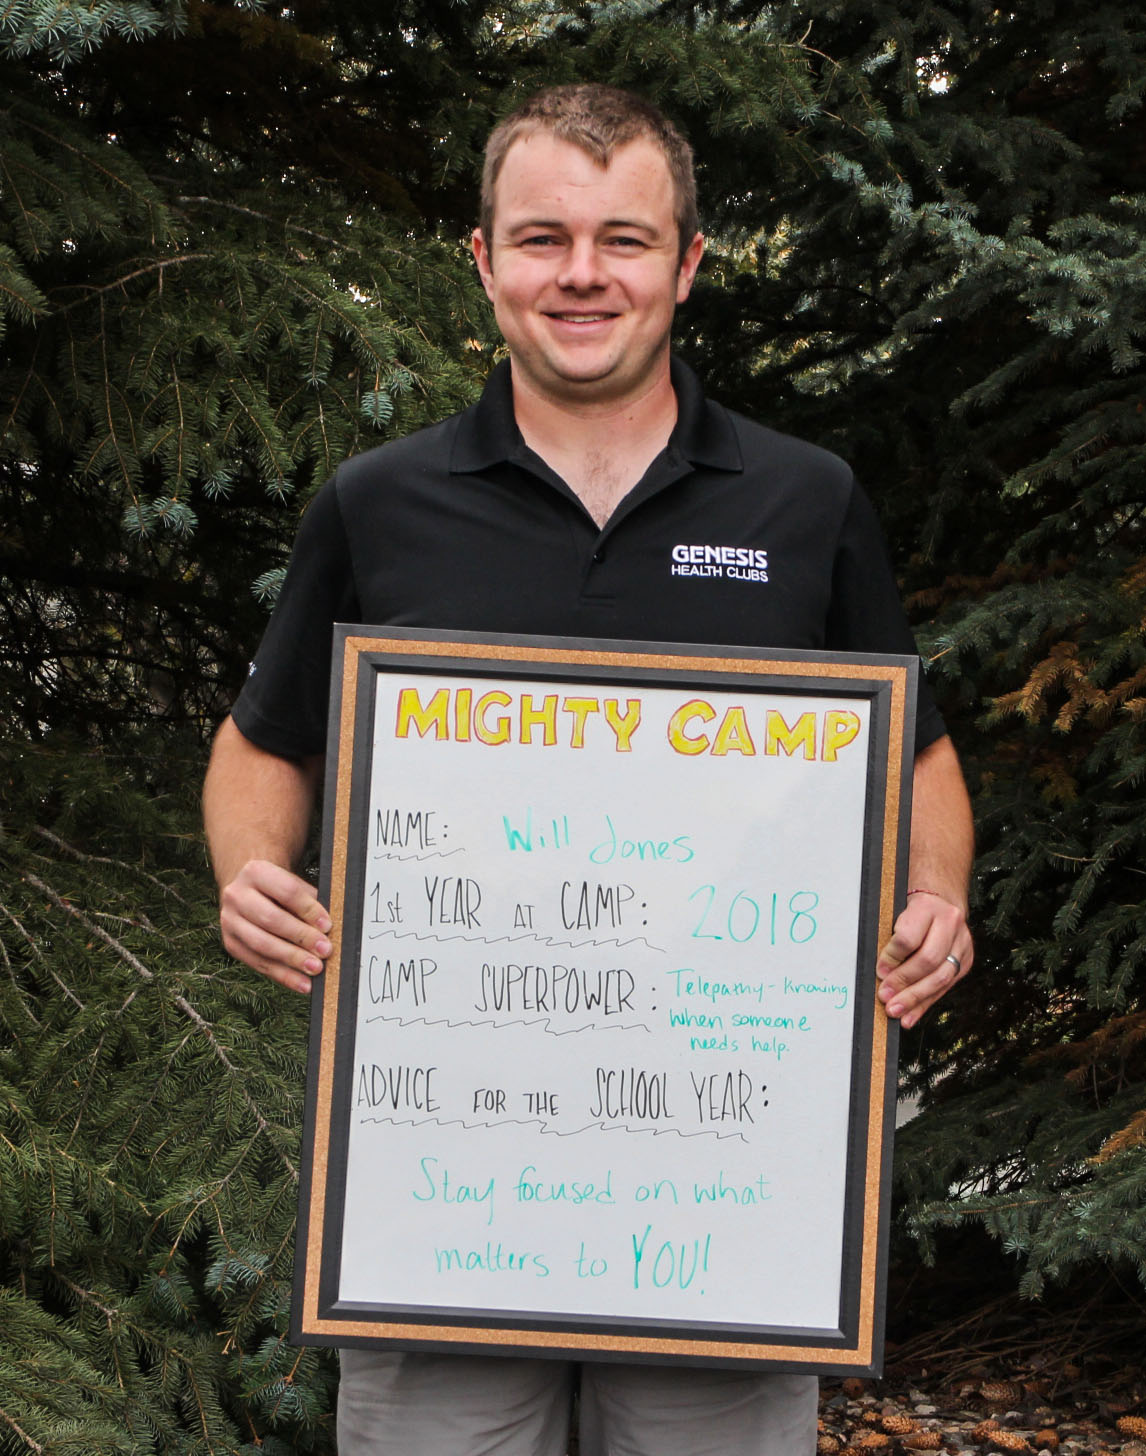 GENESIS
HEALTH CLUBS
MIGHTY CAMP
NAME: Will Jones
1st YEAR AT CAMP: 2018
CAMP SUPERPOWER: Telepathy - Knowing
when someone
needs help.
ADVICE FOR THE SCHOOL YEAR:
Stay focused on what
matters to YOU!